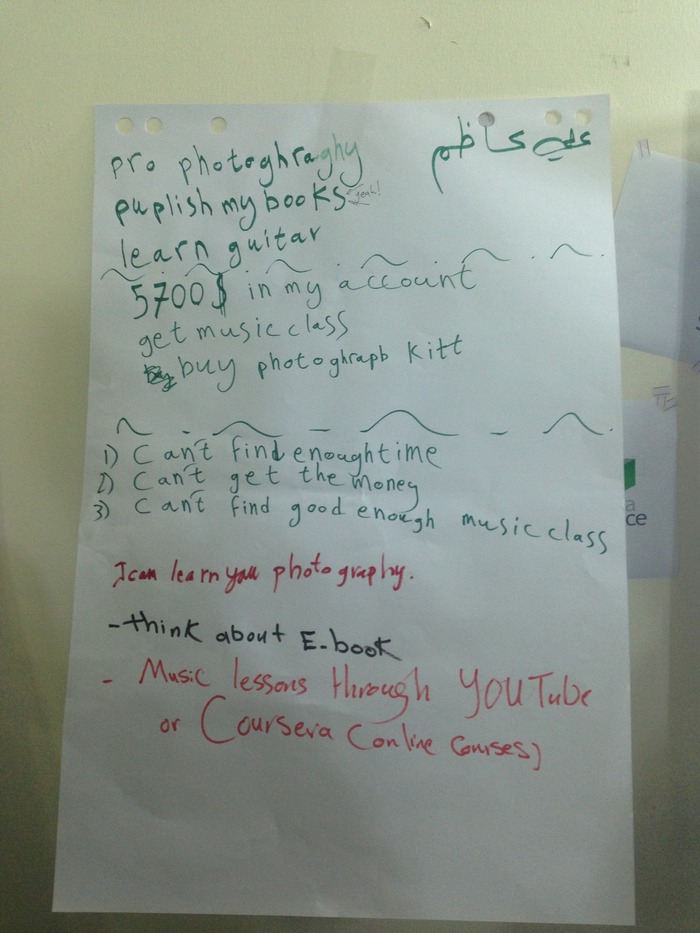 علي كاظم
pro photoghraghy
puplish my books yeah!
learn guitar
5700$ in my account
get music class
buy photoghrapb kitt
1) Can't find enough time
2) Can't get the money
3) Can't find good enough music class
I can learn you photography.
- think about E-book
- Music lessons through YOUTube
or Coursera (online courses)
ce